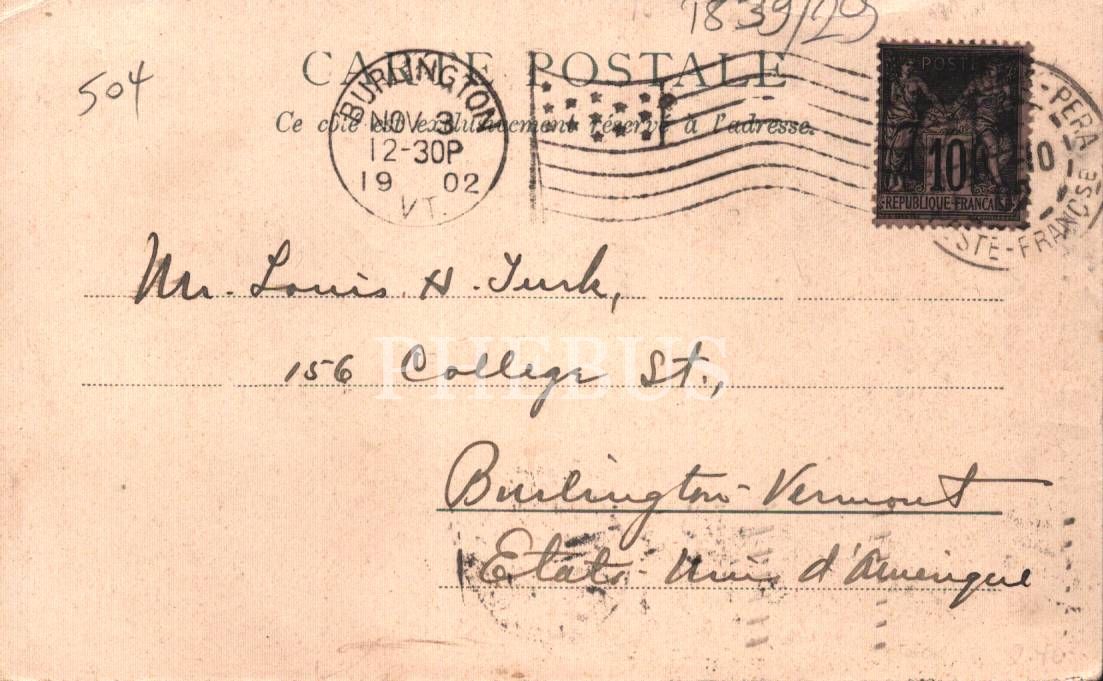 1839/29
504
CARTE POSTALE
Ce côté est exclusivement réservé à l'adresse.
BURLINGTON
NOV 3
12-30P
19 02
VT.
POSTE
10
REPUBLIQUE FRANCAISE
PERA
10
POSTE-FRANCSE
Mr. Louis H. Turk,
156 College St.,
Burlington - Vermont
Etats-Unis d'Amérique
PHEBUS